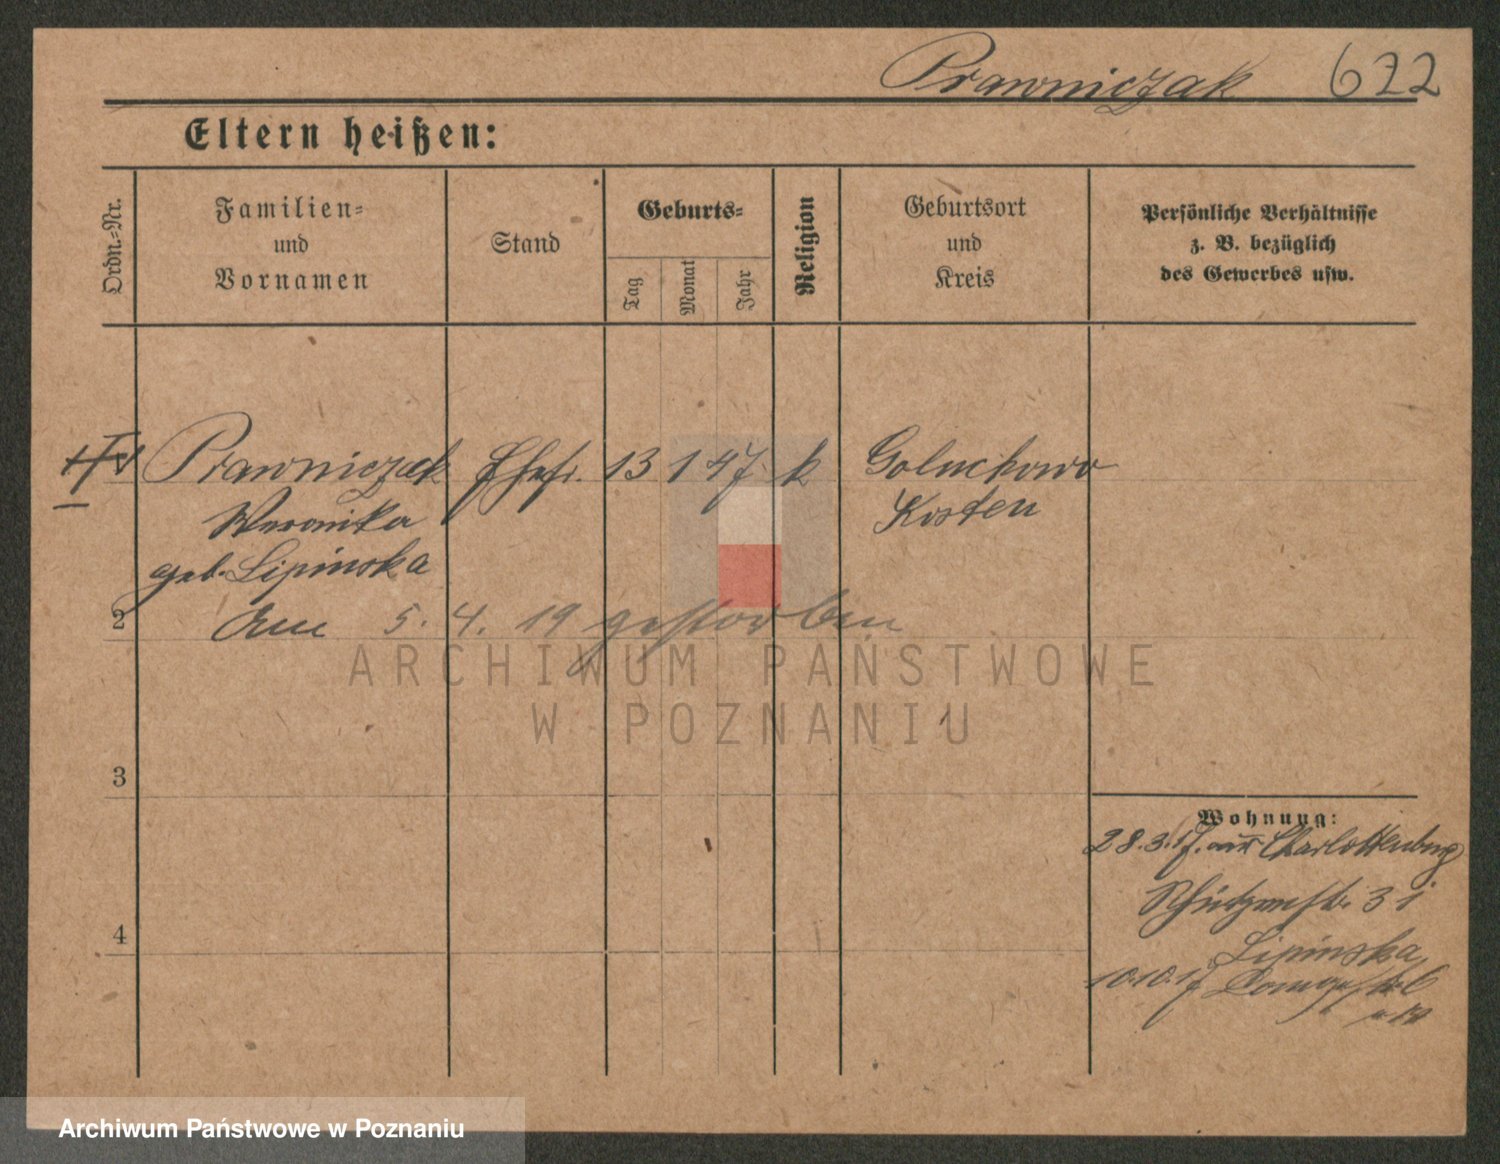 Prawniczak 622
Eltern heißen:
Ordn.-Nr.
Familien-
und
Vornamen
Stand
Geburts-
Tag
Monat
Jahr
Religion
Geburtsort
und
Kreis
Persönliche Verhältnisse
z. B. bezüglich
des Gewerbes usw.
Prawniczak Ehefr. 13 1 47 k Goluchowo
Weronika Kosten
geb. Lipinska
2 Am 5. 4. 19 gestorben
3
4
Wohnung:
28.3.17. aus Charlottenburg
Schützenstr. 3 i
Lipinska
10.10.17
ARCHIWUM PAŃSTWOWE
W POZNANIU
Archiwum Państwowe w Poznaniu